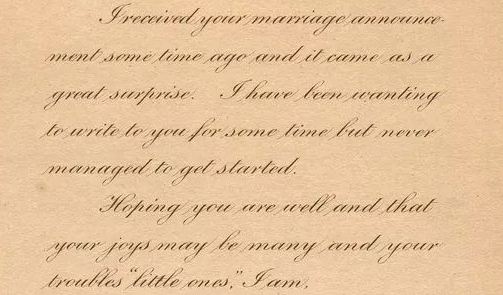 I received your marriage announce-
ment some time ago and it came as a
great surprise. I have been wanting
to write to you for some time but never
managed to get started.
Hoping you are well and that
your joys may be many and your
troubles "little ones," I am,